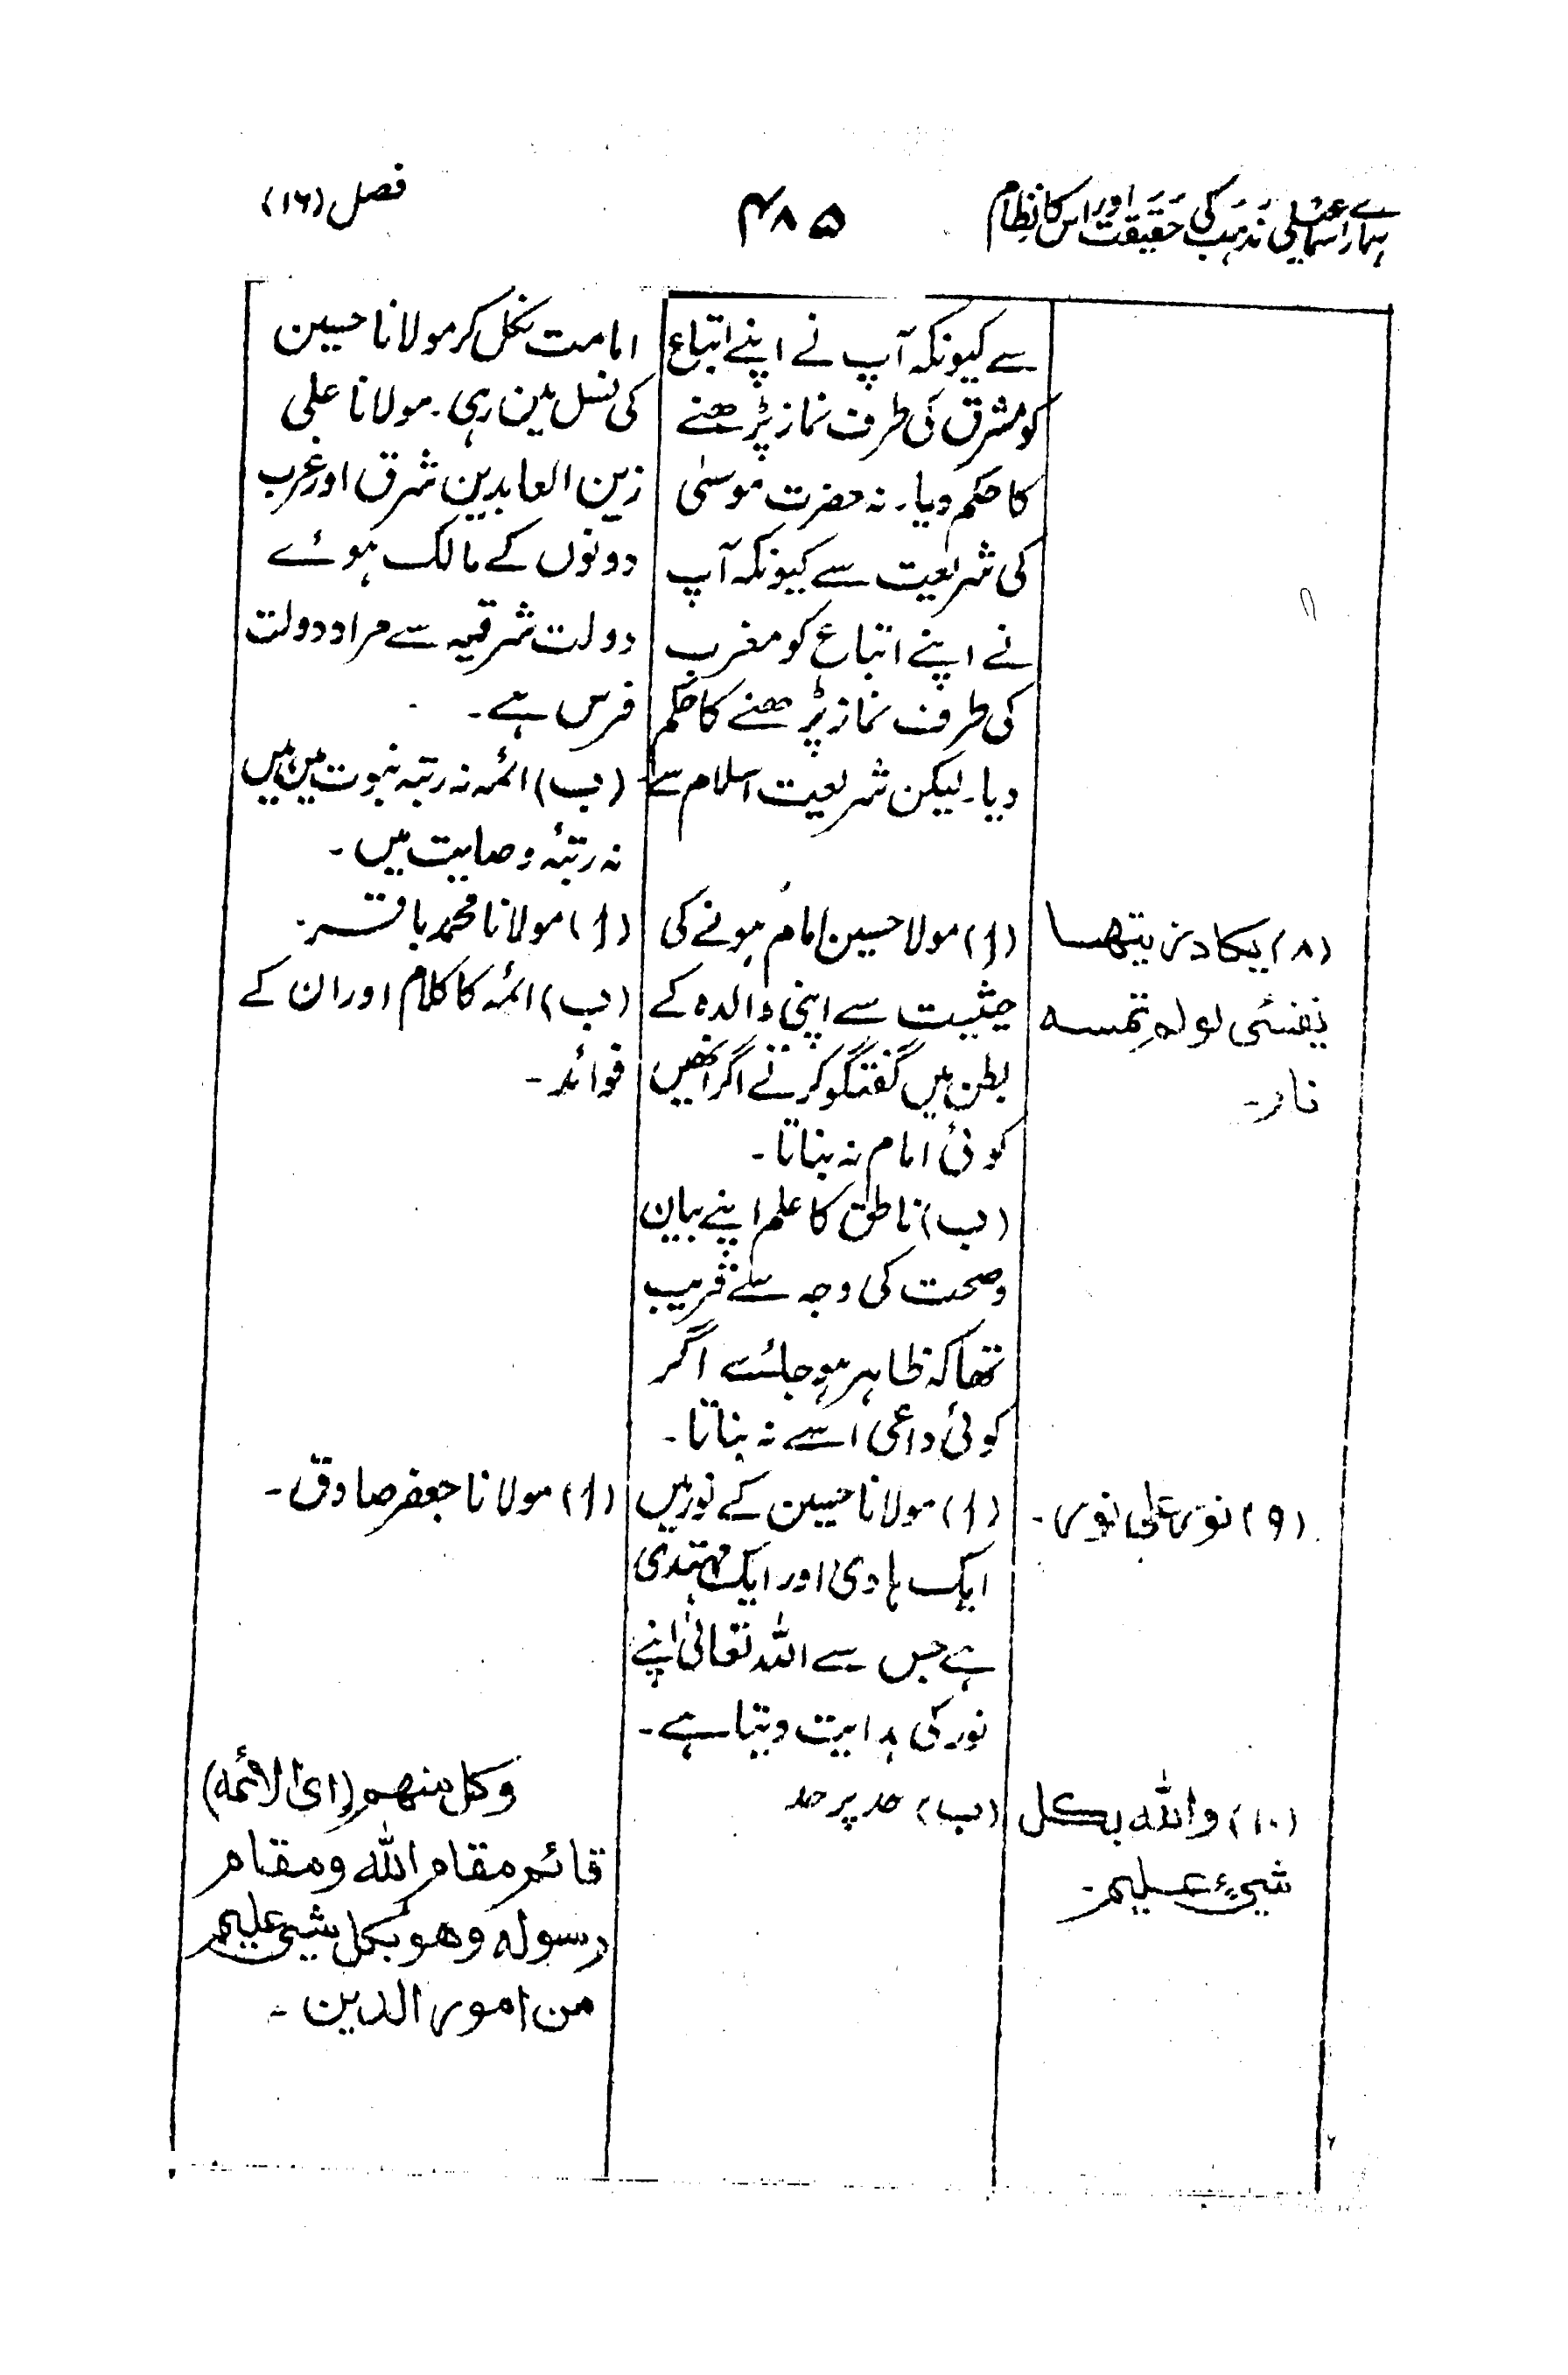 ہمارے اسمٰعیلی مذہب کی حقیقت اور اس کا نظام
۴۸۵
فصل (۱۶)
سے کیونکہ آپ نے اپنے اتباع
کو مشرق کی طرف نماز پڑھنے
کا حکم دیا۔ نہ حضرت موسیٰ
کی شریعت سے کیونکہ آپ
نے اپنے اتباع کو مغرب
کی طرف نماز پڑھنے کا حکم
دیا۔ لیکن شریعت اسلام سے
امامت نکل کر مولانا حسین
کی نسل مین رہی۔ مولانا علی
زین العابدین شرق اور غرب
دونوں کے مالک ہوئے
دولت شرقیہ سے مراد دولت
فرس ہے۔
(ب) ائمہ نہ رتبہ نبوت میں ہیں
نہ رتبۂ وصایت میں۔
(۸) یکاد زیتھا
یفشئی لولم تمسہ
نار۔
(ا) مولا حسین امام ہونے کی
حیثیت سے اپنی والدہ کے
بطن میں گفتگو کرتے اگر انھیں
کوئی امام نہ بناتا۔
(ب) ناطق کا علم اپنے بیان
وصحت کی وجہ سے قریب
تھا کہ ظاہر ہو جائے اگر
کوئی داعی اسے نہ بناتا۔
(ا) مولانا محمد باقر۔
(ب) ائمہ کا کلام اور ان کے
فوائد۔
(۹) نور علی نور۔
(ا) مولانا حسین کے نور میں
ایک ہادی اور ایک مہتدی
ہے جس سے اللہ تعالیٰ اپنے
نور کی ہدایت دیتا ہے۔
(ا) مولانا جعفر صادق۔
(۱۰) واللہ بکل
شیءٍ علیم۔
(ب) حد پر حد
وکل منھم (ای الائمہ)
قائم مقام اللہ ومقام
رسولہ وھو بکل شیی علیم
من امور الدین۔